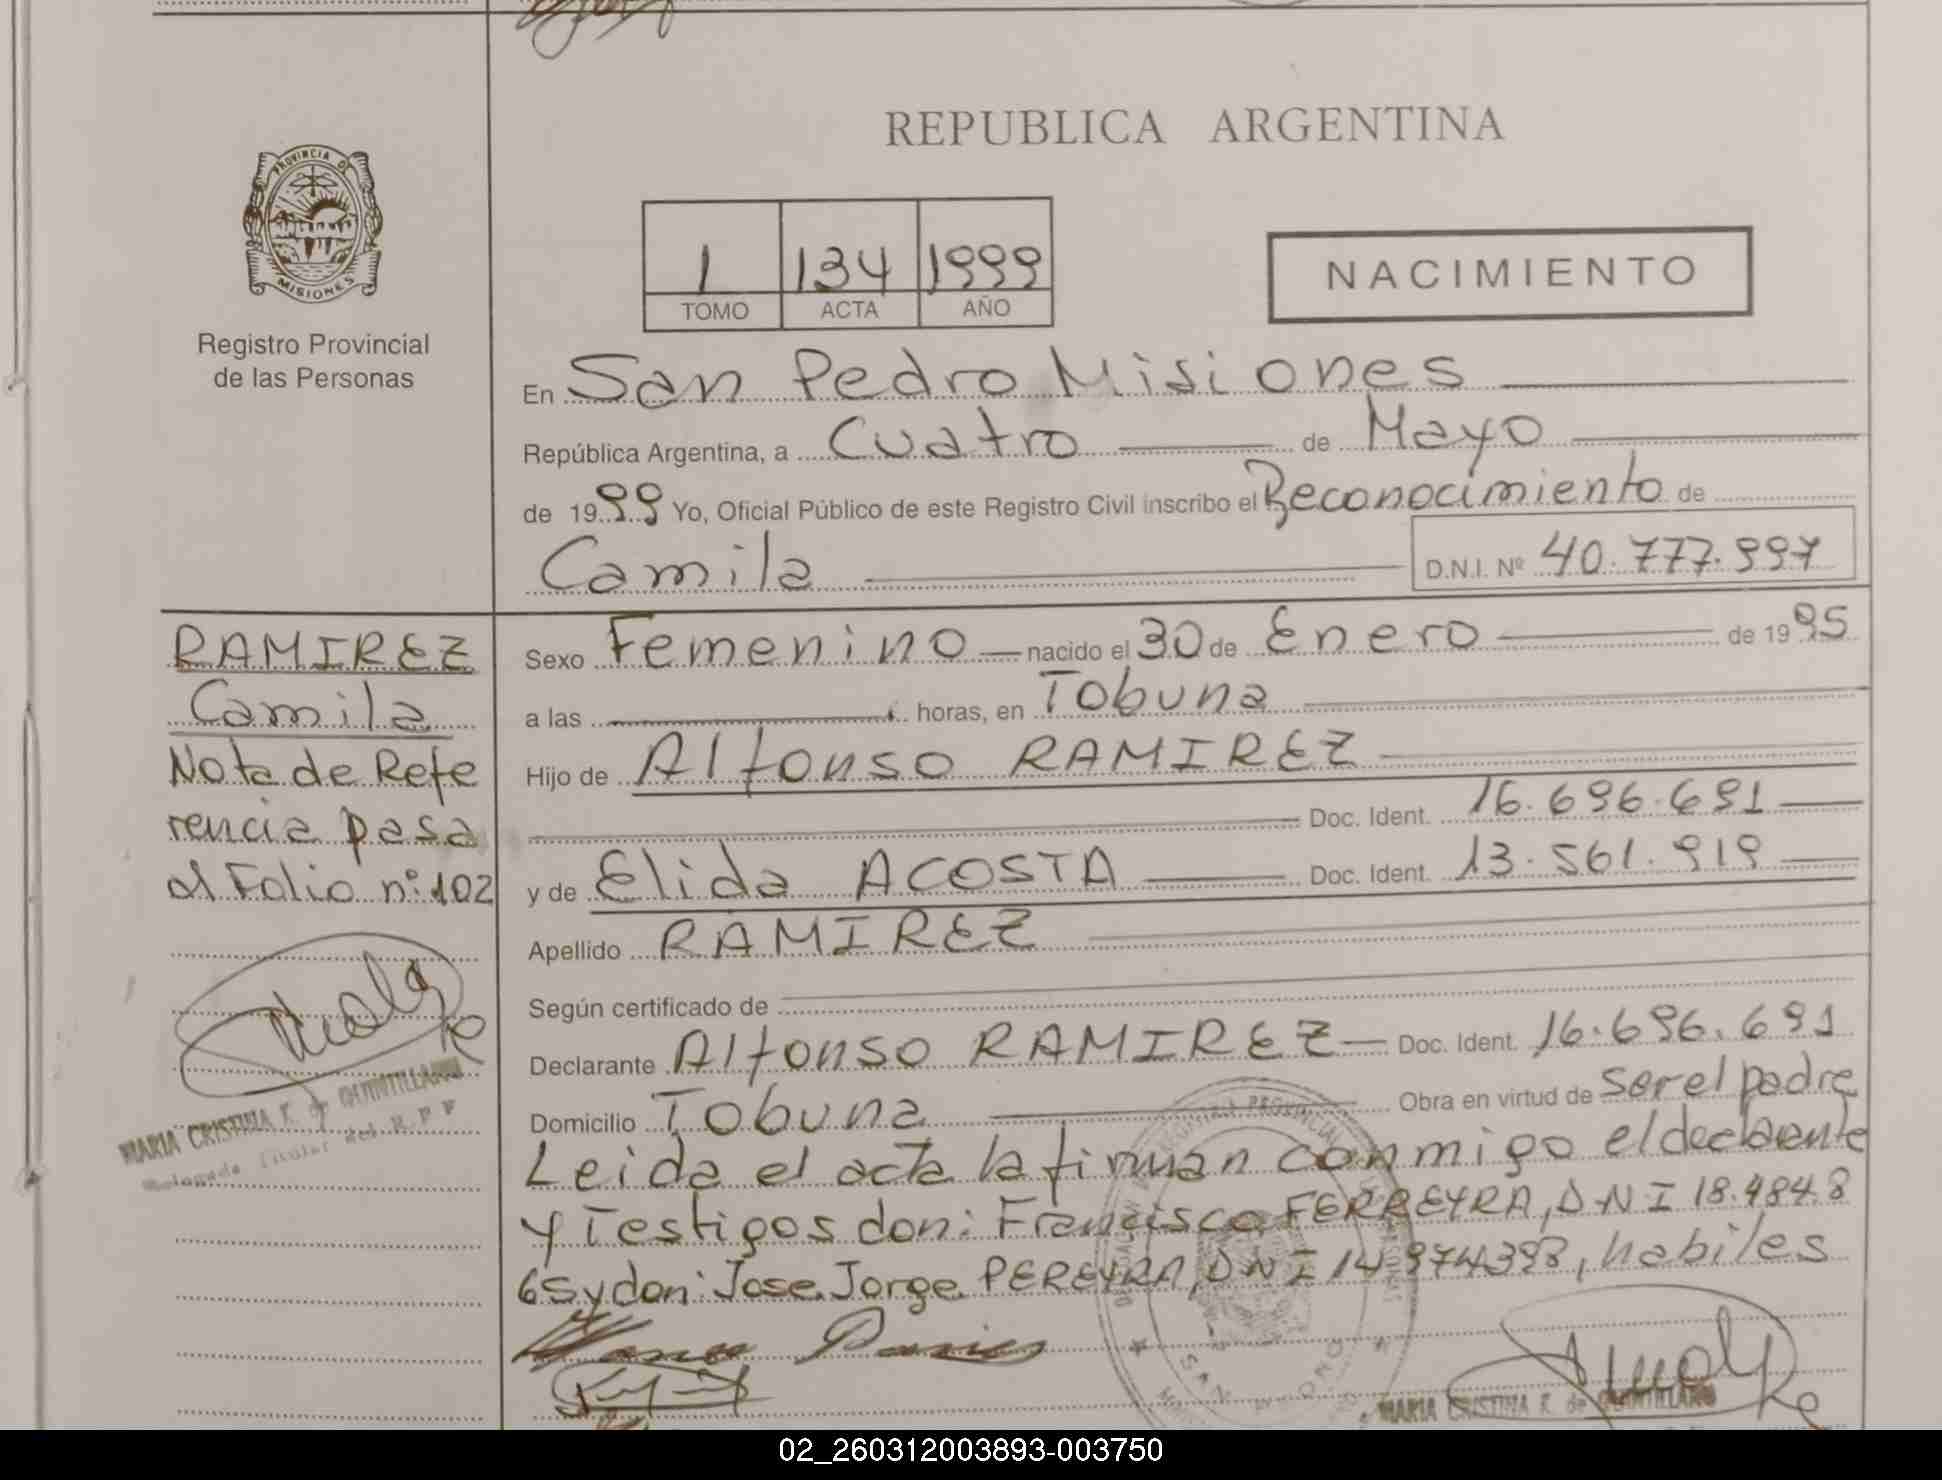 REPUBLICA ARGENTINA
PROVINCIA DE
MISIONES
Registro Provincial
de las Personas
1 134 1999
TOMO ACTA AÑO
NACIMIENTO
En San Pedro Misiones
República Argentina, a Cuatro de Mayo
de 1999 Yo, Oficial Público de este Registro Civil inscribo el Reconocimiento de
Camila D.N.I. Nº 40.777.997
RAMIREZ
Camila
Nota de Refe
rencia pasa
al Folio nº 102
MARIA CRISTINA R. de QUINTILLAN
Titular del R.P.P
Sexo Femenino nacido el 30 de Enero de 1995
a las horas, en Tobuna
Hijo de Alfonso RAMIREZ
Doc. Ident. 16.696.691
y de Elida ACOSTA Doc. Ident. 13.561.919
Apellido RAMIREZ
Según certificado de
Declarante Alfonso RAMIREZ Doc. Ident. 16.696.691
Domicilio Tobuna Obra en virtud de ser el padre
Leida el acta la firman conmigo el declarante
y Testigos don: Francisco FERREYRA, DNI 18.484.8
65 y don: Jose Jorge PEREYRA, DNI 14.974.398, habiles
SAN PEDRO
MARIA CRISTINA R. de QUINTILLAN
02_260312003893-003750